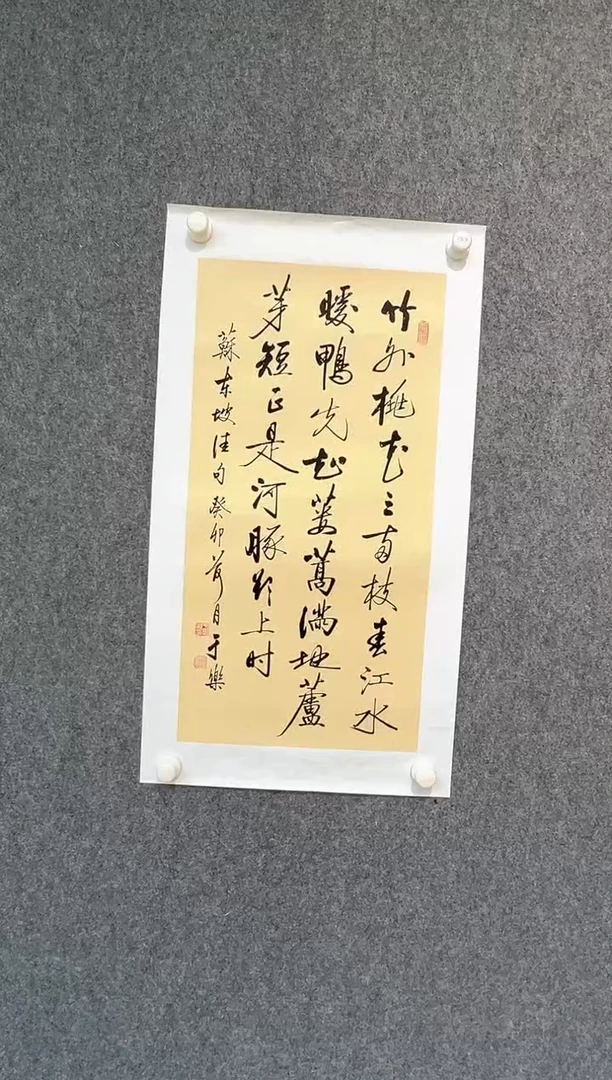 竹外桃花三两枝春江水
暖鴨先知蒌蒿满地蘆
芽短正是河豚欲上时
蘇东坡佳句癸卯荷月于樂